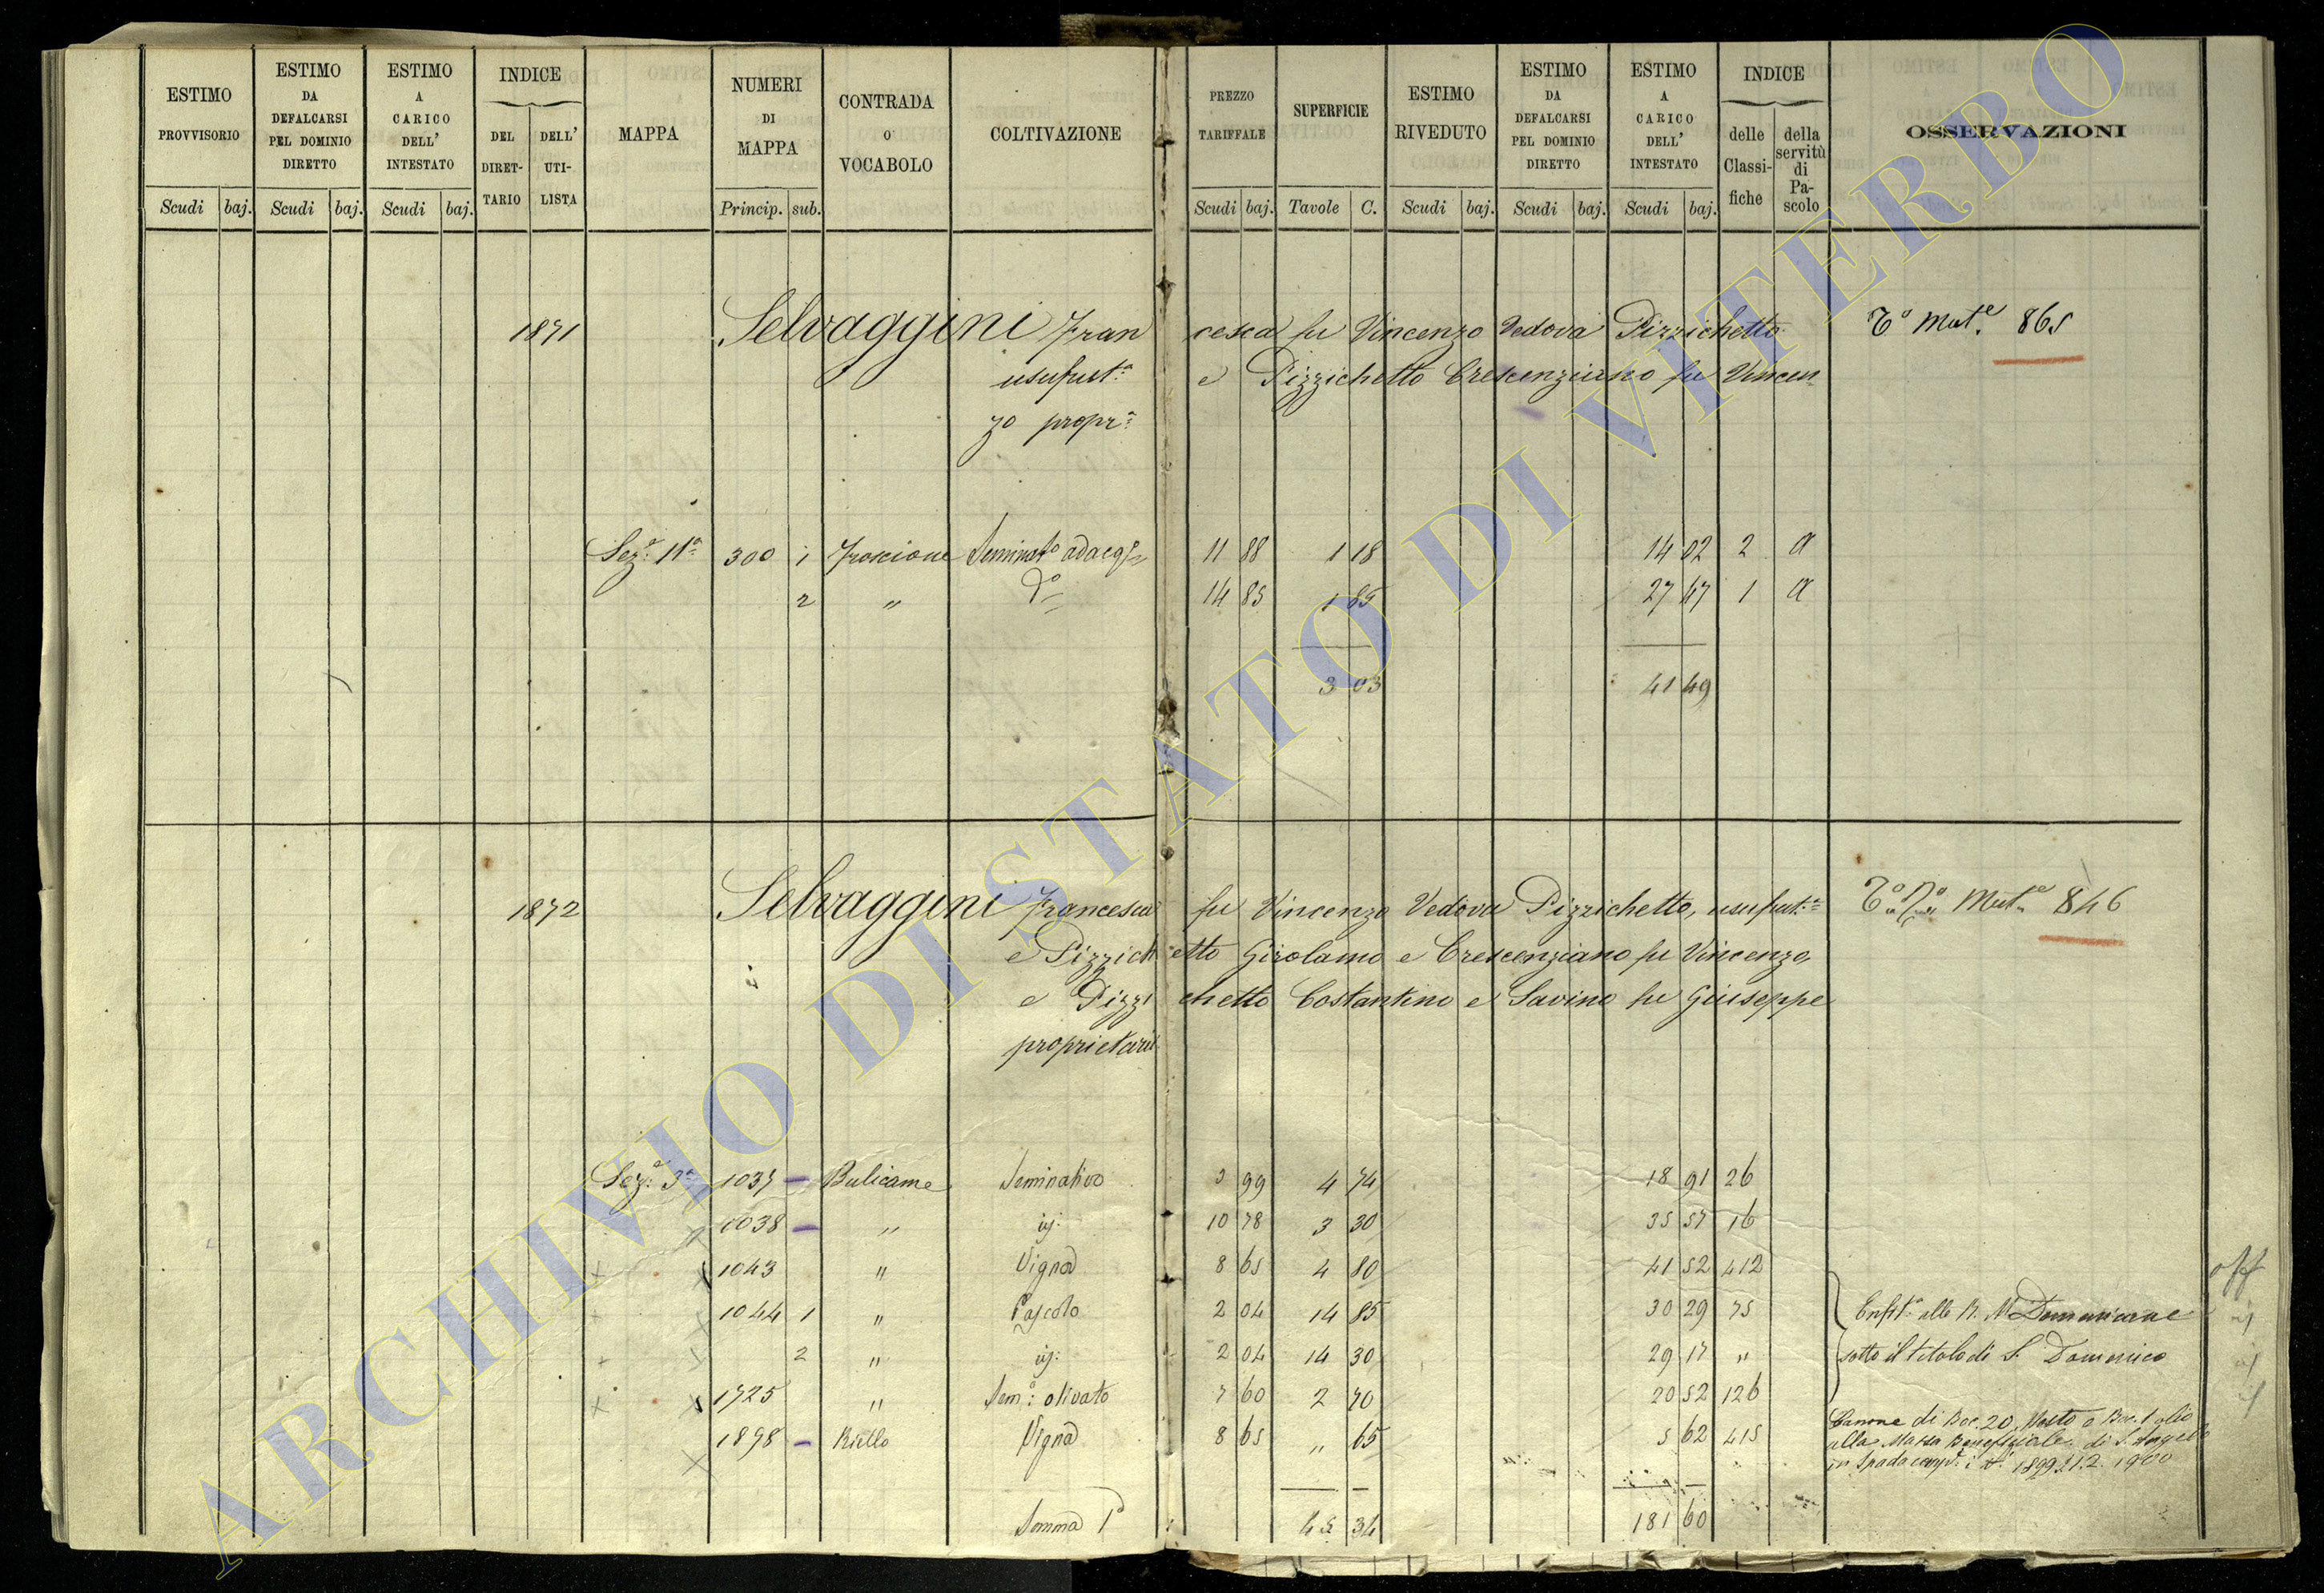 ESTIMO PROVVISORIO
ESTIMO DA DEFALCARSI PEL DOMINIO DIRETTO
ESTIMO A CARICO DELL' INTESTATO
INDICE
DEL DIRET-TARIO
DELL' UTI-LISTA
MAPPA
NUMERI DI MAPPA
CONTRADA O VOCABOLO
COLTIVAZIONE
PREZZO TARIFFALE
SUPERFICIE
ESTIMO RIVEDUTO
ESTIMO DA DEFALCARSI PEL DOMINIO DIRETTO
ESTIMO A CARICO DELL' INTESTATO
INDICE
delle Classi-fiche
della servitù di Pa-scolo
OSSERVAZIONI
Scudi baj. Scudi baj. Scudi baj. Princip. sub. Scudi baj. Tavole C. Scudi baj. Scudi baj. Scudi baj.
1871 Selvaggini Francesca fu Vincenzo Vedova Pizzichetto To Mute. 865
usufrut.a e Pizzichetto Crescenziano fu Vincen
zo propr.o
Sez.e 11a 300 1 Seminato adacq. 11 88 1 18 14 02 2 a
2 " Do 14 85 1 85 27 47 1 a
3 03 41 49
1872 Selvaggini Francesca fu Vincenzo Vedova Pizzichetto, usufrut.a Mute. 846
e Pizzichetto Girolamo e Crescenziano fu Vincenzo
e Pizzichetto Costantino e Savino fu Giuseppe
proprietarii
Sez.e 3a 1037 - Bulicame Seminativo 3 99 4 74 18 91 26
1038 - " id. 10 78 3 30 35 57 16
1043 " Vigna 8 65 4 80 41 52 412
1044 1 " Pascolo 2 04 14 85 30 29 75
2 " id. 2 04 14 30 29 17 "
1725 " Sem.o olivato 7 60 2 70 20 52 126
1898 - Riello Vigna 8 65 " 65 5 62 415
Enfit. alle R. M. Domenicane
sotto il titolo di S. Domenico
Canone di Boc. 20, Mosto e Boc. 1 olio
alla Massa Beneficiale di S. Angelo
in Spada 1899 1900
Somma Pa 45 34 181 60
ARCHIVIO DI STATO DI VITERBO